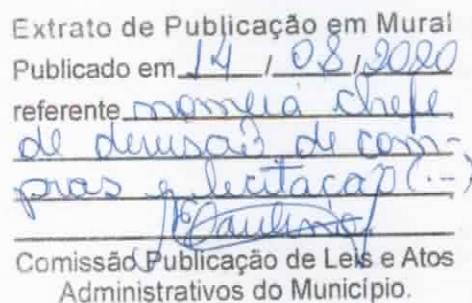 Extrato de Publicação em Mural
Publicado em 14 / 08 / 2020
referente nomeia chefe
de devisão de com-
pras e lecitação (...)
Comissão Publicação de Leis e Atos
Administrativos do Município.